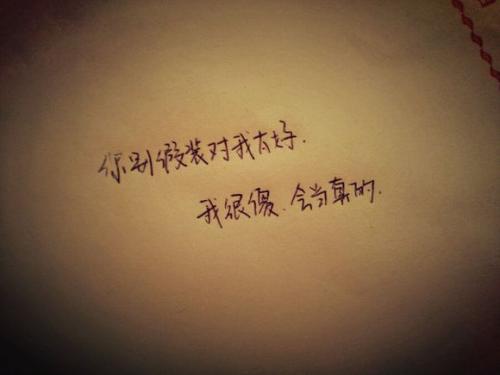 你别假装对我太好.
我很傻.会当真的.